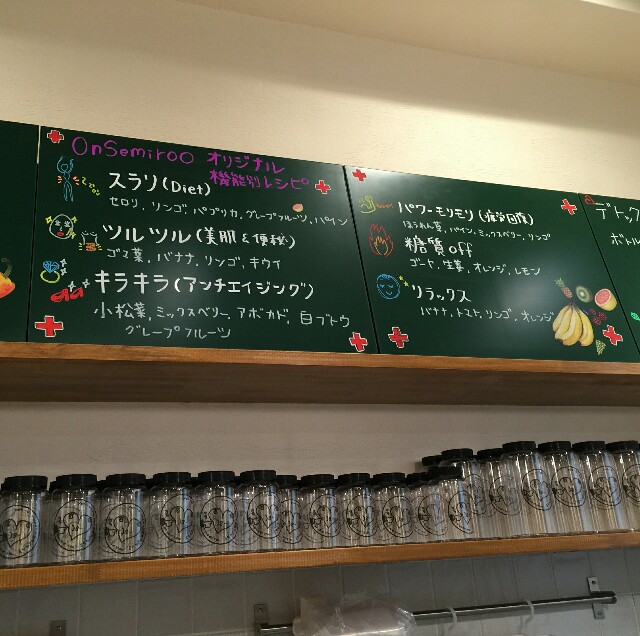 OnSemiroo オリジナル
機能別レシピ
スラリ(Diet)
セロリ、リンゴ、パプリカ、グレープフルーツ、パイン
ツルツル(美肌&便秘)
ゴマ菜、バナナ、リンゴ、キウイ
キラキラ(アンチエイジング)
小松菜、ミックスベリー、アボカド、白ブドウ
グレープフルーツ
パワーモリモリ(疲労回復)
ほうれん草、パイン、ミックスベリー、リンゴ
糖質off
ゴーヤ、生姜、オレンジ、レモン
リラックス
バナナ、トマト、リンゴ、オレンジ
デトック
ボトル